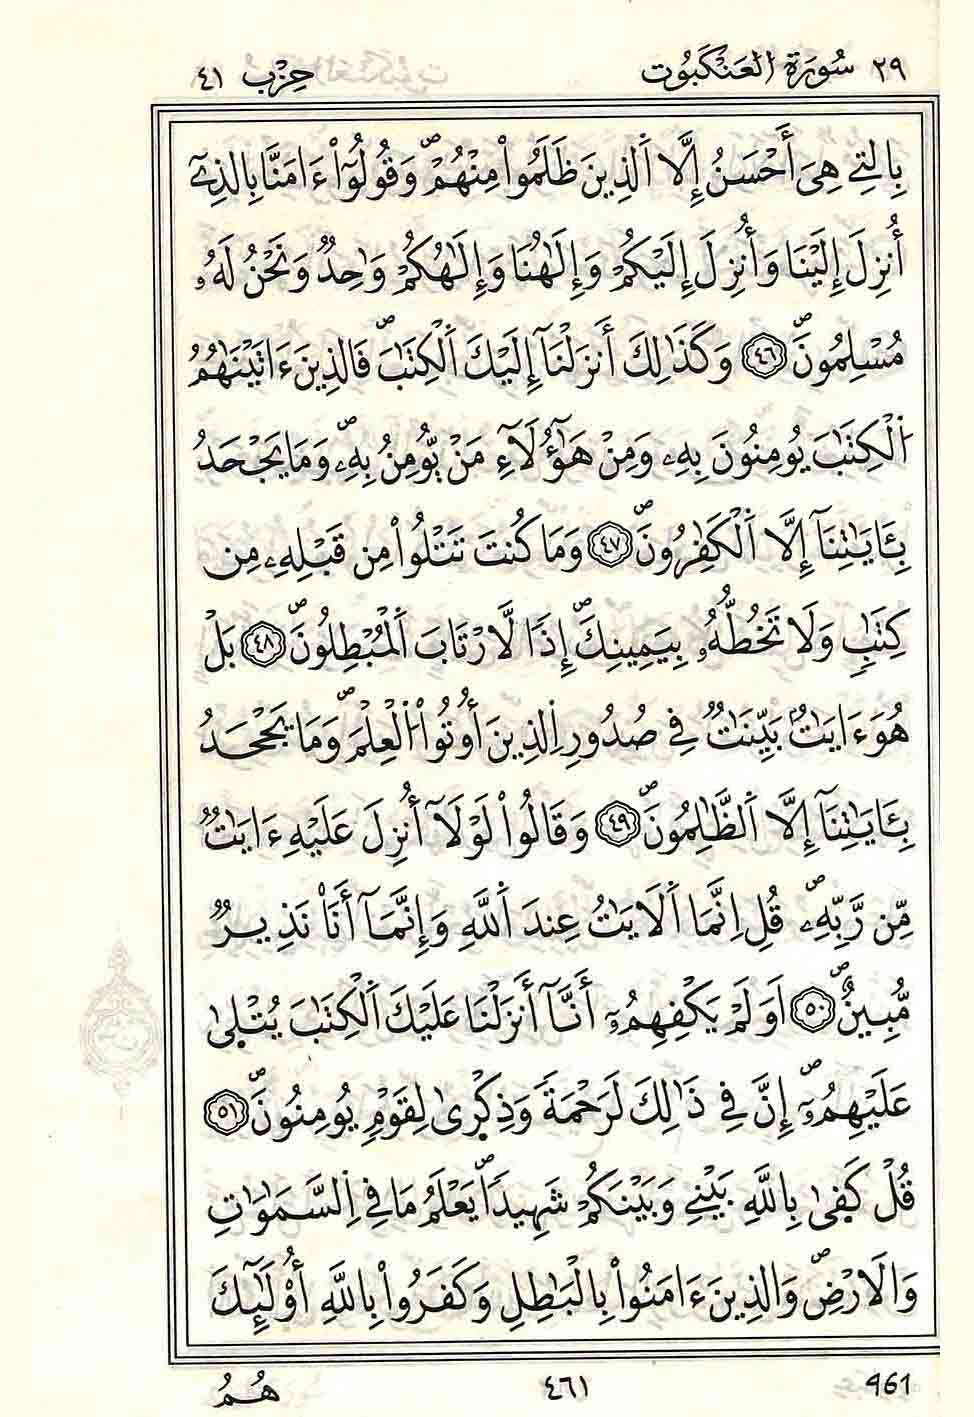 ٢٩ سُورَةُ الْعَنْكَبُوت حِزْب ٤١
بِالتِے هِيَ أَحْسَنُ إِلَّا اَ۬لذِينَ ظَلَمُواْ مِنْهُمْۖ وَقُولُوٓاْ ءَامَنَّا بِالذِےٓ
أُنزِلَ إِلَيْنَا وَأُنزِلَ إِلَيْكُمْ وَإِلَٰهُنَا وَإِلَٰهُكُمْ وَٰحِدٞ وَنَحْنُ لَهُۥ
مُسْلِمُونَۖ ٤٦ وَكَذَٰلِكَ أَنزَلْنَآ إِلَيْكَ اَ۬لْكِتَٰبَۖ فَالذِينَ ءَاتَيْنَٰهُمُ
اُ۬لْكِتَٰبَ يُومِنُونَ بِهِۦ وَمِنْ هَٰٓؤُلَآءِ مَنْ يُّومِنُ بِهِۦۖ وَمَا يَجْحَدُ
بِـَٔايَٰتِنَآ إِلَّا اَ۬لْكَٰفِرُونَۖ ٤٧ وَمَا كُنتَ تَتْلُواْ مِن قَبْلِهِۦ مِن
كِتَٰبٖ وَلَا تَخُطُّهُۥ بِيَمِينِكَۖ إِذاٗ لَّارْتَابَ اَ۬لْمُبْطِلُونَۖ ٤٨ بَلْ
هُوَ ءَايَٰتُۢ بَيِّنَٰتٞ فِے صُدُورِ اِ۬لذِينَ أُوتُواْ اُ۬لْعِلْمَۖ وَمَا يَجْحَدُ
بِـَٔايَٰتِنَآ إِلَّا اَ۬لظَّٰلِمُونَۖ ٤٩ وَقَالُواْ لَوْلَآ أُنزِلَ عَلَيْهِ ءَايَٰتٞ
مِّن رَّبِّهِۦۖ قُلِ اِنَّمَا اَ۬لَايَٰتُ عِندَ اَ۬للَّهِ وَإِنَّمَآ أَنَا۠ نَذِيرٞ
مُّبِينٌۖ ٥٠ اَوَلَمْ يَكْفِهِمُۥٓ أَنَّآ أَنزَلْنَا عَلَيْكَ اَ۬لْكِتَٰبَ يُتْلَىٰ
عَلَيْهِمُۥٓۖ إِنَّ فِے ذَٰلِكَ لَرَحْمَةٗ وَذِكْرَىٰ لِقَوْمٖ يُومِنُونَۖ ٥١
قُلْ كَفَىٰ بِاللَّهِ بَيْنِے وَبَيْنَكُمْ شَهِيداٗۖ يَعْلَمُ مَا فِے اِ۬لسَّمَٰوَٰتِ
وَالَارْضِۖ وَالذِينَ ءَامَنُواْ بِالْبَٰطِلِ وَكَفَرُواْ بِاللَّهِ أُوْلَٰٓئِكَ
هُمُ ٤٦١ 461